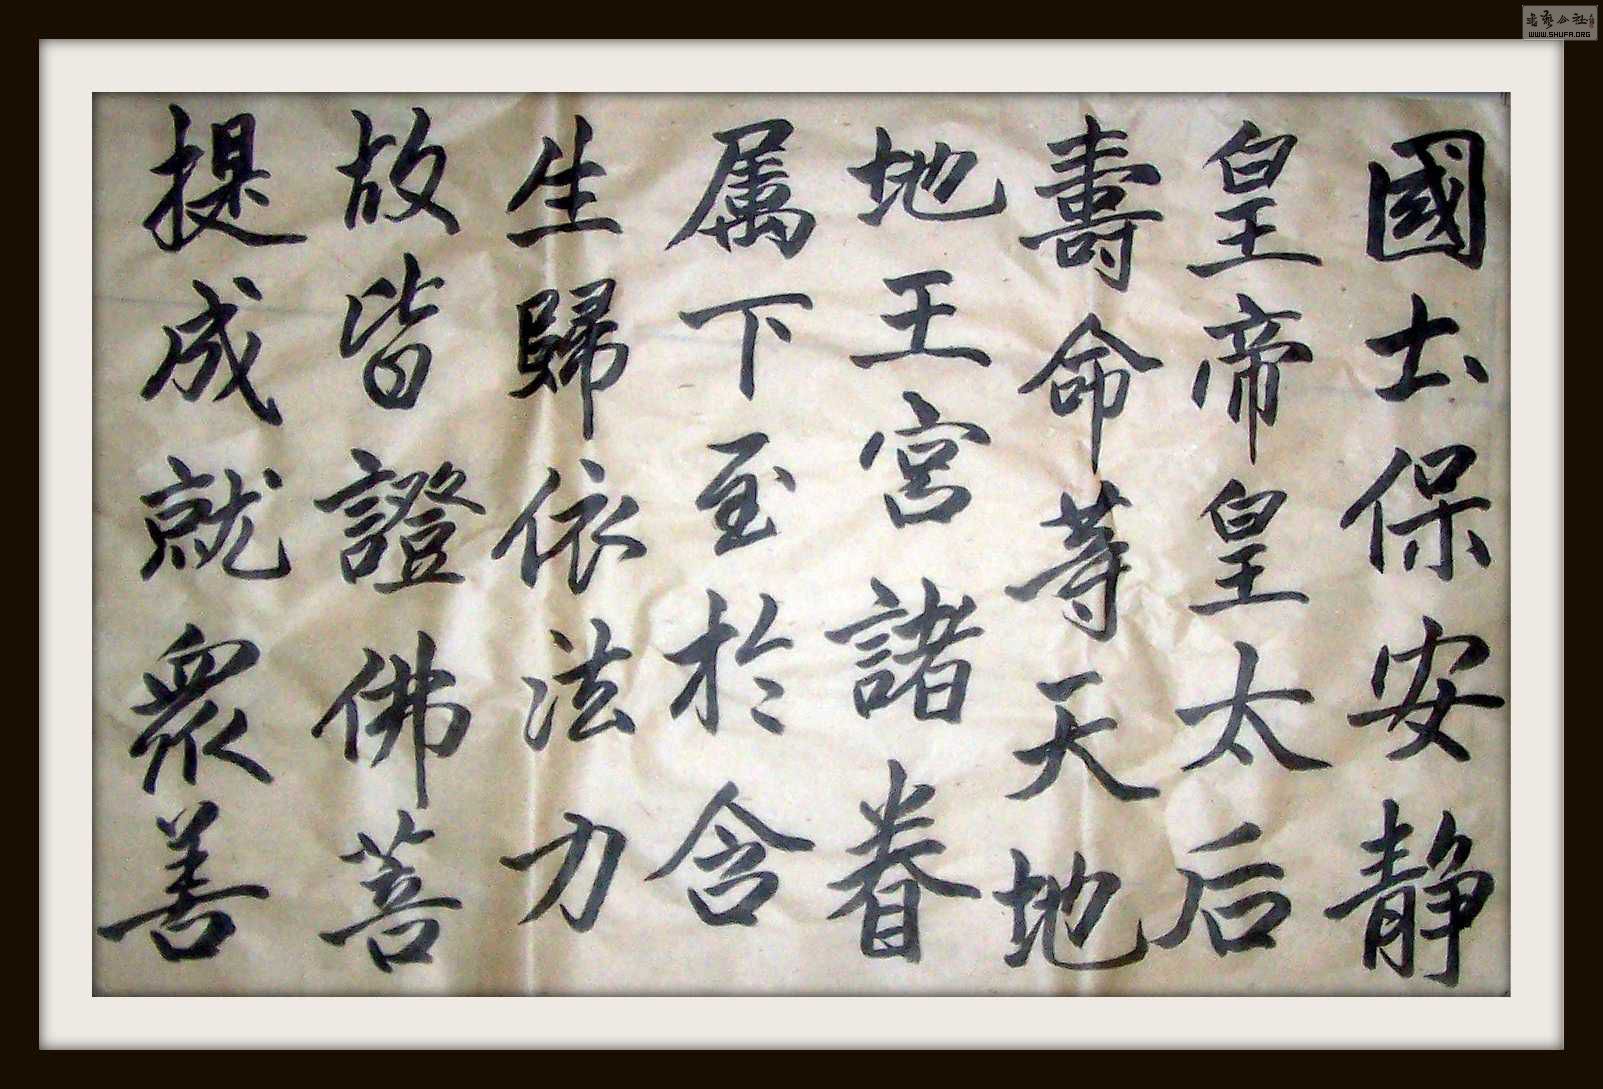 國土保安静
皇帝皇太后
壽命等天地
地王宮諸眷
属下至於含
生歸依法力
故皆證佛菩
提成就衆善
WWW.SHUFA.ORG